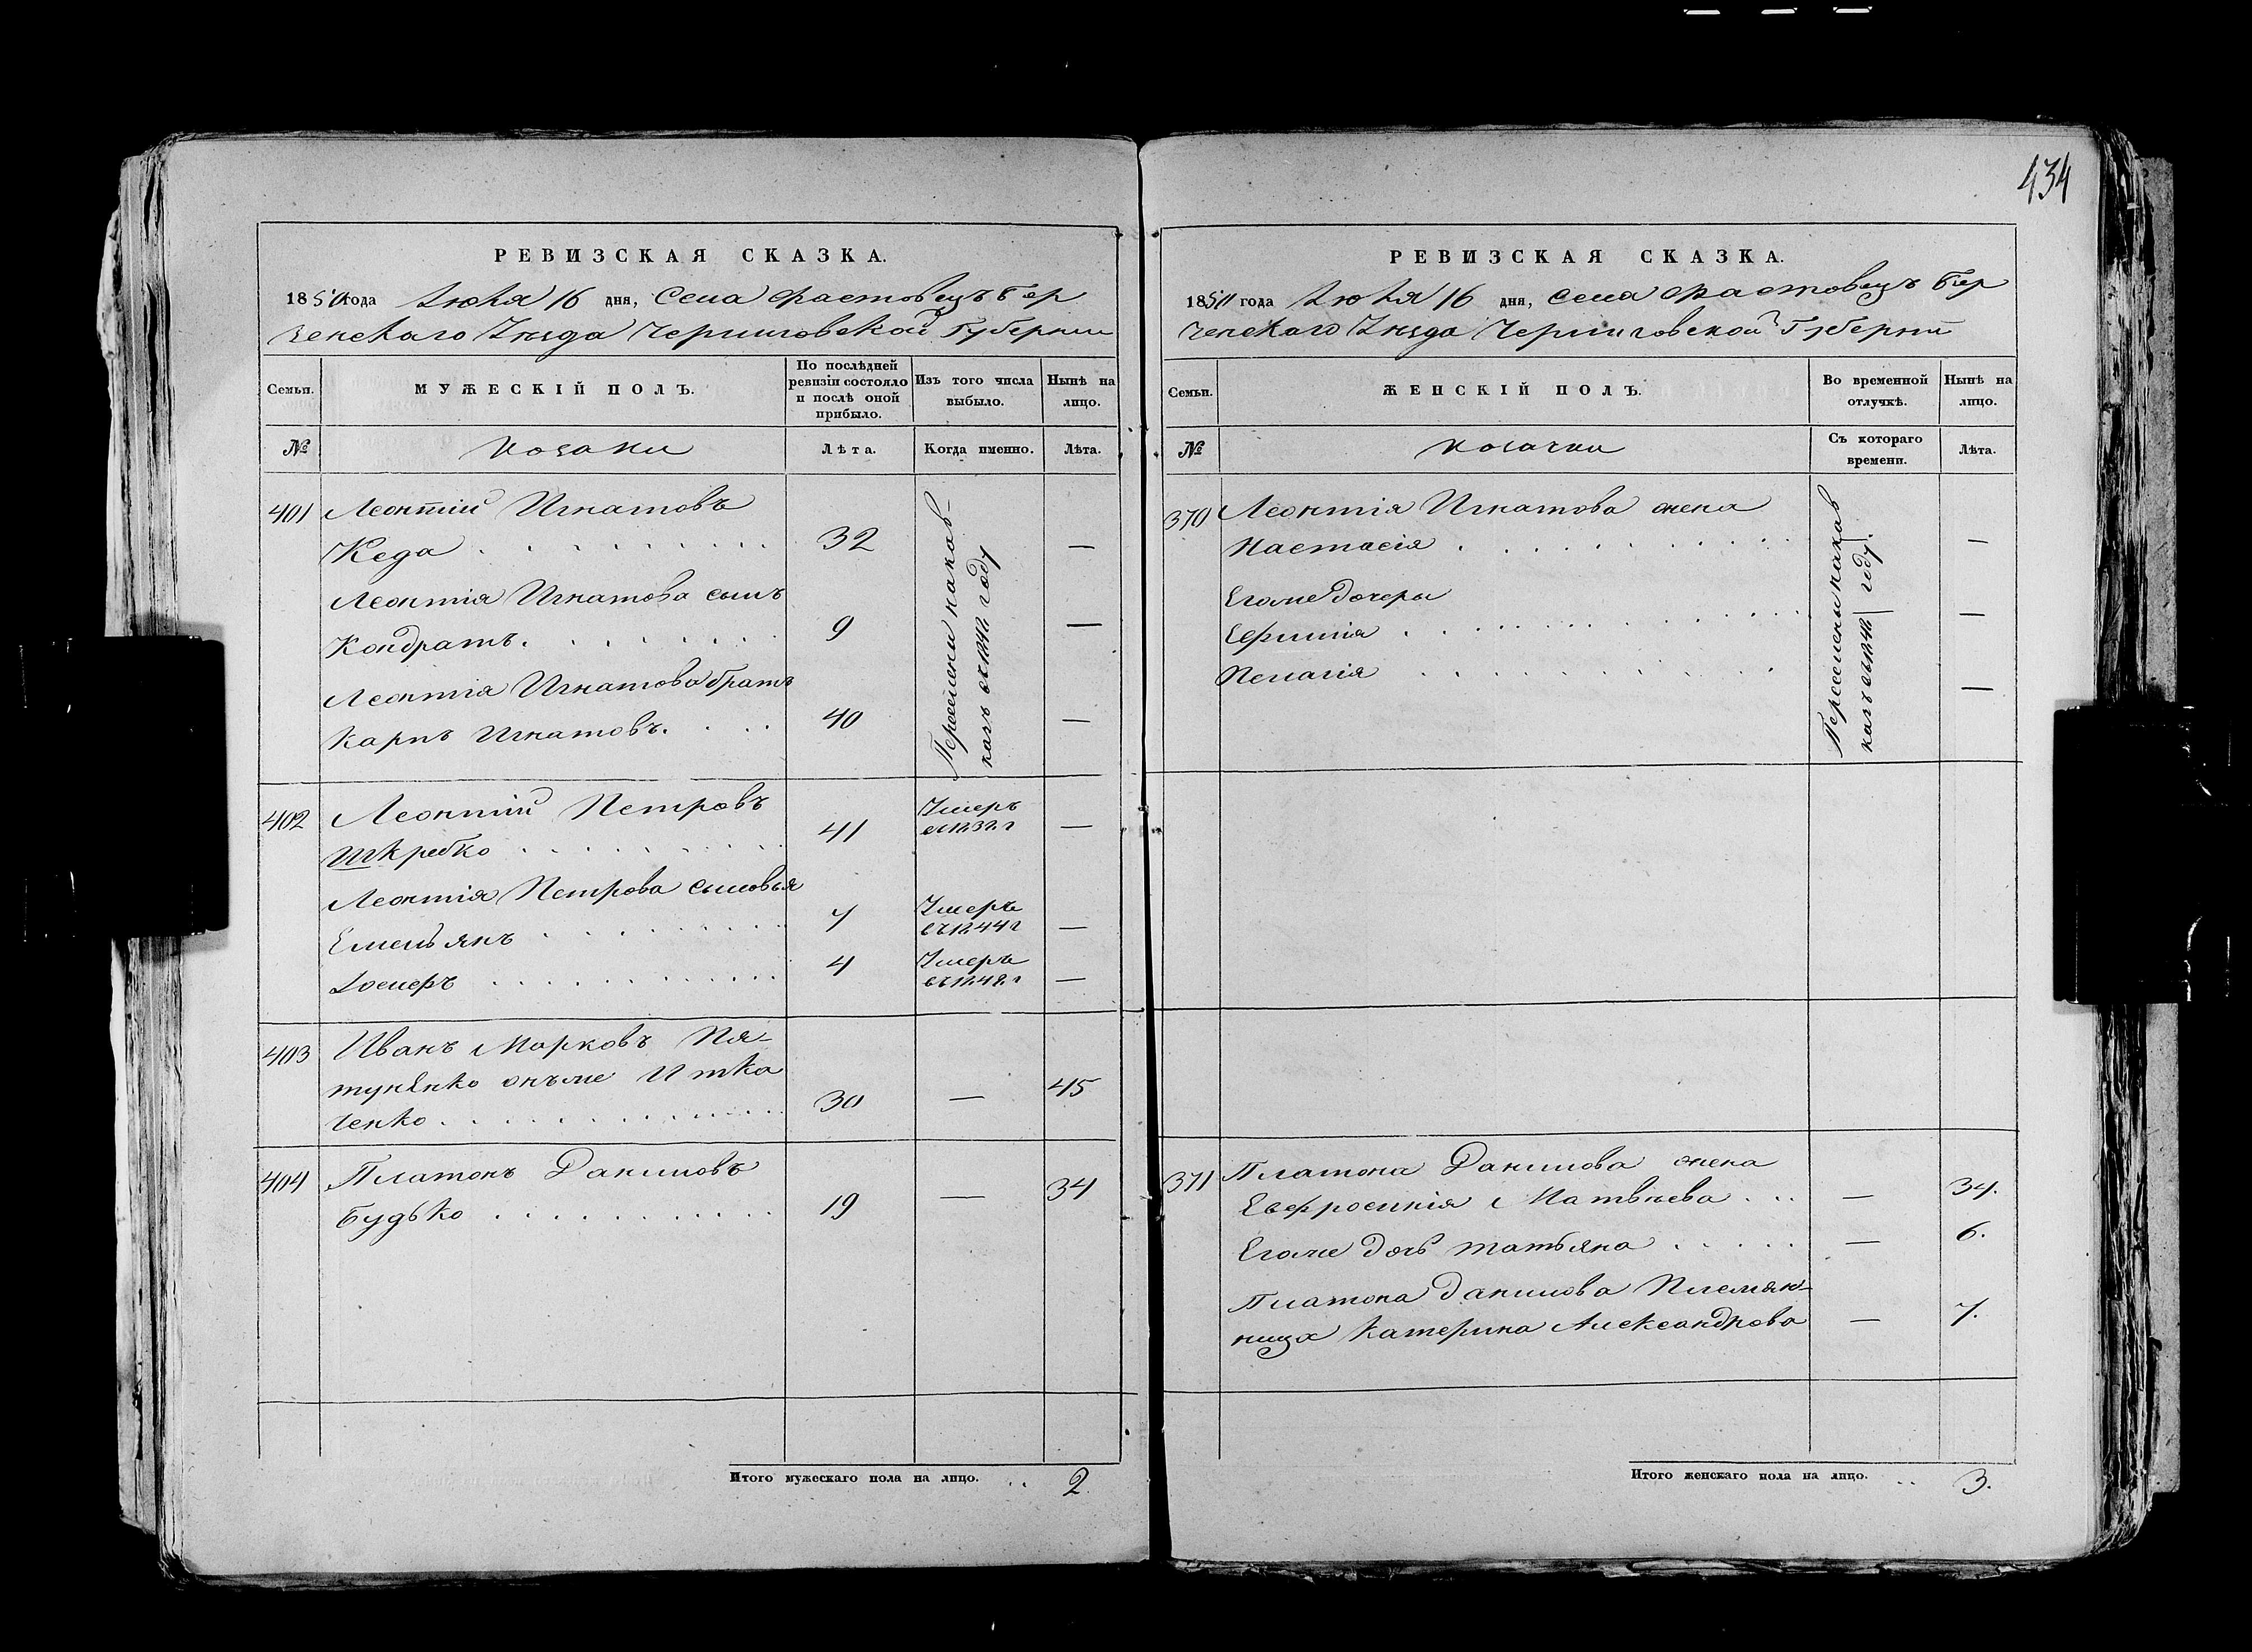 434
РЕВИЗСКАЯ СКАЗКА.
1850 года Іюля 16 дня, Села Фастовецъ Бер
зенскаго Уѣзда Черниговской Губерніи
Семьи.
МУЖЕСКІЙ ПОЛЪ.
По послѣдней ревизіи состояло и послѣ оной прибыло.
Изъ того числа выбыло.
Нынѣ на лицо.
№
Козаки
Лѣта.
Когда именно.
Лѣта.
401 Леонтій Игнатовъ
Кеда 32 —
Леонтія Игнатова сынъ
Кондратъ. 9 —
Леонтія Игнатова братъ
Карпъ Игнатовъ. 40 —
Переселены на кав-
казъ въ году
402 Леонтій Петровъ
Шкребко 41 Умеръ —
Леонтія Петрова сыновья
Емельянъ 7 Умеръ въ 1844 г —
4 Умеръ въ 1848 г —
403 Иванъ Марковъ Пя-
тунЕнко онъже Итка
ченко 30 — 45
404 Платонъ Даниловъ
Будько 19 — 34
Итого мужескаго пола на лицо. 2
РЕВИЗСКАЯ СКАЗКА.
1850 года Іюля 16 дня, Села Фастовецъ Бер
зенскаго Уѣзда Черниговской Губерніи
Семьи.
ЖЕНСКІЙ ПОЛЪ.
Во временной отлучкѣ.
Нынѣ на лицо.
№
Козачки
Съ котораго времени.
Лѣта.
370 Леонтія Игнатова жена
Настасія —
Егоже дочери
Ефимія —
Пелагія —
Переселены на кав
казъ въ году.
371 Платона Данилова жена
Евфросинія Матвѣева — 34.
Егоже дочь Татьяна — 6.
Платона Данилова Племян-
ница Катерина Александрова — 7.
Итого женскаго пола на лицо. 3.